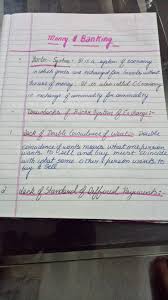 Money & Banking
Barter System : It is a system of economy
in which goods are exchanged for goods without
the use of money. It is also called C.C economy
ie exchange of commodity for commodity
Drawbacks of Barter System of Exchange :-
1. Lack of Double Coincidence of Wants :- Double
coincidence of wants means what one person
wants to sell and buy must coincide
with what some other person wants to
buy & sell
2. Lack of Standard of Deffered Payments :-